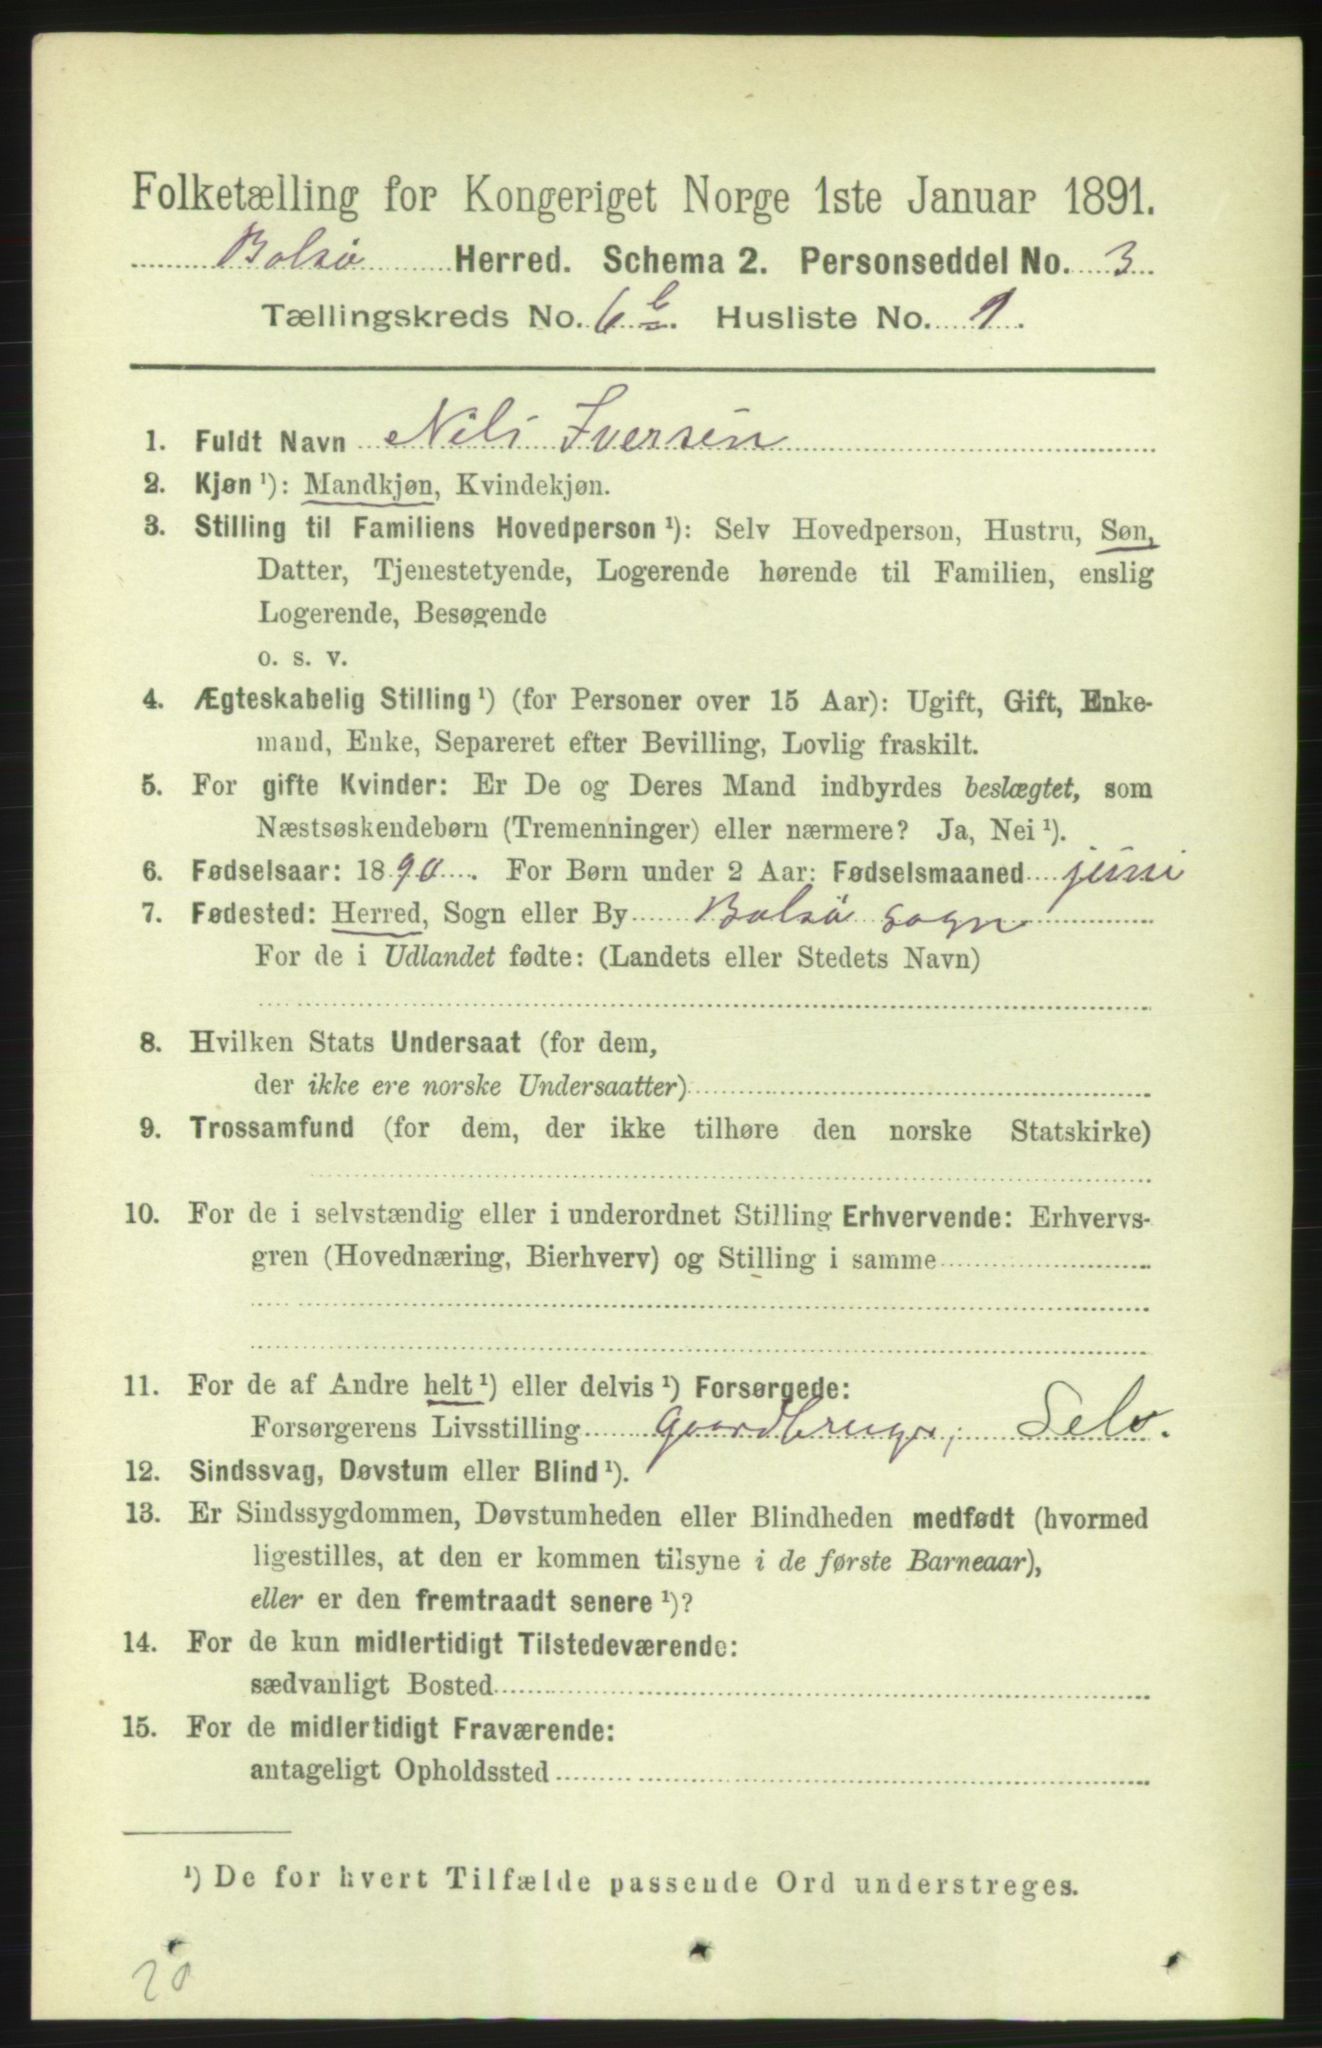 Folketælling for Kongeriget Norge 1ste Januar 1891.
Bolsø Herred. Schema 2. Personseddel No. 3
Tællingskreds No. 6 b. Husliste No. 1.
1. Fuldt Navn Nils Iversen
2. Kjøn ¹): Mandkjøn, Kvindekjøn.
3. Stilling til Familiens Hovedperson ¹): Selv Hovedperson, Hustru, Søn,
Datter, Tjenestetyende, Logerende hørende til Familien, enslig
Logerende, Besøgende
o. s. v.
4. Ægteskabelig Stilling ¹) (for Personer over 15 Aar): Ugift, Gift, Enke-
mand, Enke, Separeret efter Bevilling, Lovlig fraskilt.
5. For gifte Kvinder: Er De og Deres Mand indbyrdes beslægtet, som
Næstsøskendebørn (Tremenninger) eller nærmere? Ja, Nei ¹).
6. Fødselsaar: 1890. For Børn under 2 Aar: Fødselsmaaned juni
7. Fødested: Herred, Sogn eller By Bolsø sogn
For de i Udlandet fødte: (Landets eller Stedets Navn)
8. Hvilken Stats Undersaat (for dem,
der ikke ere norske Undersaatter)
9. Trossamfund (for dem, der ikke tilhøre den norske Statskirke)
10. For de i selvstændig eller i underordnet Stilling Erhvervende: Erhvervs-
gren (Hovednæring, Bierhverv) og Stilling i samme
11. For de af Andre helt ¹) eller delvis ¹) Forsørgede:
Forsørgerens Livsstilling Gaardbruger, Selv.
12. Sindssvag, Døvstum eller Blind ¹).
13. Er Sindssygdommen, Døvstumheden eller Blindheden medfødt (hvormed
ligestilles, at den er kommen tilsyne i de første Barneaar),
eller er den fremtraadt senere ¹)?
14. For de kun midlertidigt Tilstedeværende:
sædvanligt Bosted
15. For de midlertidigt Fraværende:
antageligt Opholdssted
¹) De for hvert Tilfælde passende Ord understreges.
20